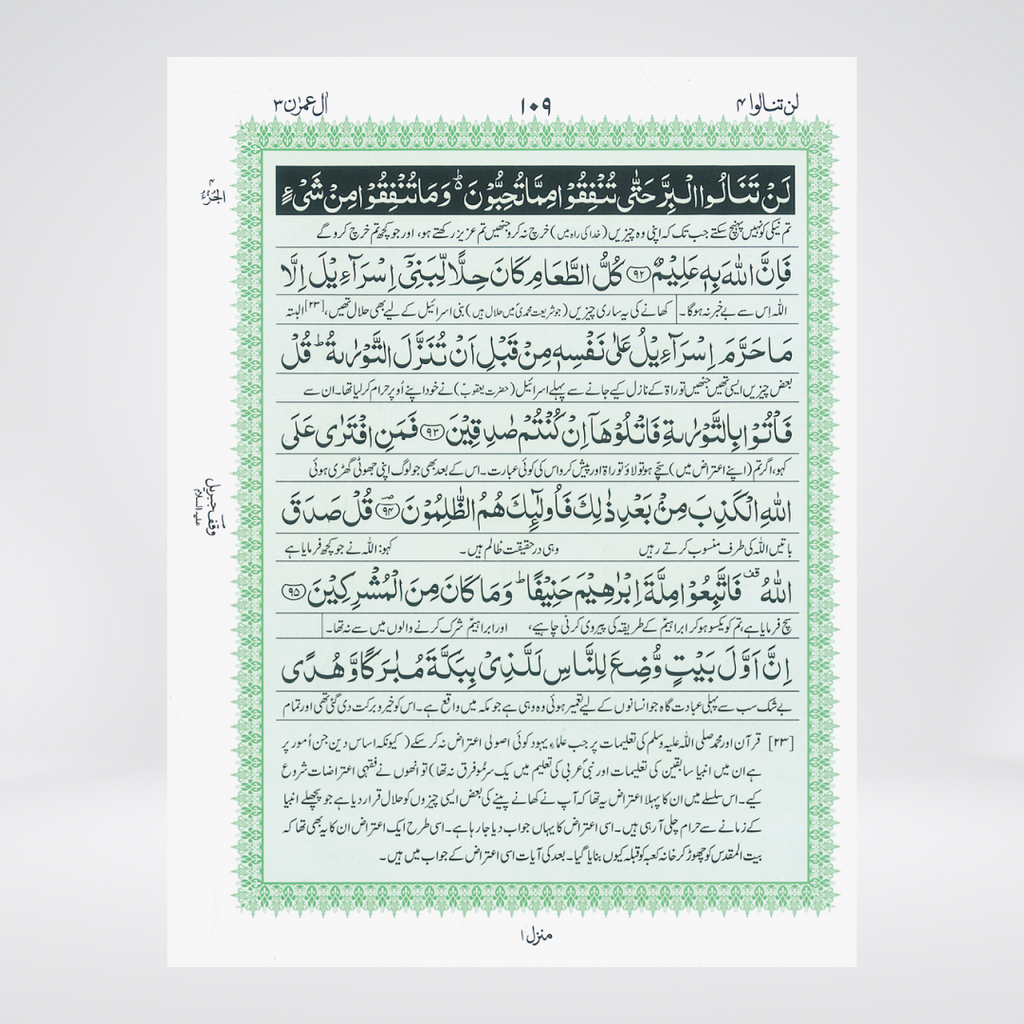 لن تنالوا ۴
۱۰۹
اٰل عمرٰن ۳
لَنْ تَنَالُوا الْبِرَّ حَتّٰى تُنْفِقُوْا مِمَّا تُحِبُّوْنَ ؕ وَ مَا تُنْفِقُوْا مِنْ شَیْءٍ
الجزء ۴
تم نیکی کو نہیں پہنچ سکتے جب تک کہ اپنی وہ چیزیں (خدا کی راہ میں) خرچ نہ کرو جنھیں تم عزیز رکھتے ہو، اور جو کچھ تم خرچ کرو گے
فَاِنَّ اللّٰهَ بِهٖ عَلِیْمٌ ﴿۹۲﴾ كُلُّ الطَّعَامِ كَانَ حِلًّا لِّبَنِیْۤ اِسْرَآءِیْلَ اِلَّا
اللہ اس سے بے خبر نہ ہوگا۔ کھانے کی یہ ساری چیزیں (جو شریعت محمدیؐ میں حلال ہیں) بنی اسرائیل کے لیے بھی حلال تھیں،[۲۳] البتہ
مَا حَرَّمَ اِسْرَآءِیْلُ عَلٰى نَفْسِهٖ مِنْ قَبْلِ اَنْ تُنَزَّلَ التَّوْرٰىةُ ؕ قُلْ
بعض چیزیں ایسی تھیں جنھیں توراۃ کے نازل کیے جانے سے پہلے اسرائیل (حضرت یعقوبؑ) نے خود اپنے اُوپر حرام کر لیا تھا۔ ان سے
فَاْتُوْا بِالتَّوْرٰىةِ فَاتْلُوْهَاۤ اِنْ كُنْتُمْ صٰدِقِیْنَ ﴿۹۳﴾ فَمَنِ افْتَرٰى عَلَى
کہو، اگر تم (اپنے اعتراض میں) سچے ہو تو لاؤ توراۃ اور پیش کرو اس کی کوئی عبارت۔ اس کے بعد بھی جو لوگ اپنی جھوٹی گھڑی ہوئی
اللّٰهِ الْكَذِبَ مِنْۢ بَعْدِ ذٰلِكَ فَاُولٰٓئِكَ هُمُ الظّٰلِمُوْنَ ﴿۹۴﴾ قُلْ صَدَقَ
وقف جبریل علیہ السلام
باتیں اللہ کی طرف منسوب کرتے رہیں وہی درحقیقت ظالم ہیں۔ کہو: اللہ نے جو کچھ فرمایا ہے
اللّٰهُ ۫ فَاتَّبِعُوْا مِلَّةَ اِبْرٰهِیْمَ حَنِیْفًا ؕ وَ مَا كَانَ مِنَ الْمُشْرِكِیْنَ ﴿۹۵﴾
سچ فرمایا ہے، تم کو یکسو ہو کر ابراہیمؑ کے طریقہ کی پیروی کرنی چاہیے، اور ابراہیمؑ شرک کرنے والوں میں سے نہ تھا۔
اِنَّ اَوَّلَ بَیْتٍ وُّضِعَ لِلنَّاسِ لَلَّذِیْ بِبَكَّةَ مُبٰرَكًا وَّ هُدًی
بے شک سب سے پہلی عبادت گاہ جو انسانوں کے لیے تعمیر ہوئی وہ وہی ہے جو مکہ میں واقع ہے۔ اس کو خیر و برکت دی گئی تھی اور تمام
[۲۳] قرآن اور محمد صلی اللہ علیہ وسلم کی تعلیمات پر جب علماءِ یہود کوئی اصولی اعتراض نہ کر سکے (کیونکہ اساسِ دین جن اُمور پر
ہے ان میں انبیا سابقین کی تعلیمات اور نبیؐ عربی کی تعلیم میں یک سرِ مُو فرق نہ تھا) تو انھوں نے فقہی اعتراضات شروع
کیے۔ اس سلسلے میں ان کا پہلا اعتراض یہ تھا کہ آپ نے کھانے پینے کی بعض ایسی چیزوں کو حلال قرار دیا ہے جو پچھلے انبیا
کے زمانے سے حرام چلی آ رہی ہیں۔ اسی اعتراض کا یہاں جواب دیا جا رہا ہے۔ اسی طرح ایک اعتراض ان کا یہ بھی تھا کہ
بیت المقدس کو چھوڑ کر خانہ کعبہ کو قبلہ کیوں بنایا گیا۔ بعد کی آیات اسی اعتراض کے جواب میں ہیں۔
منزل ۱